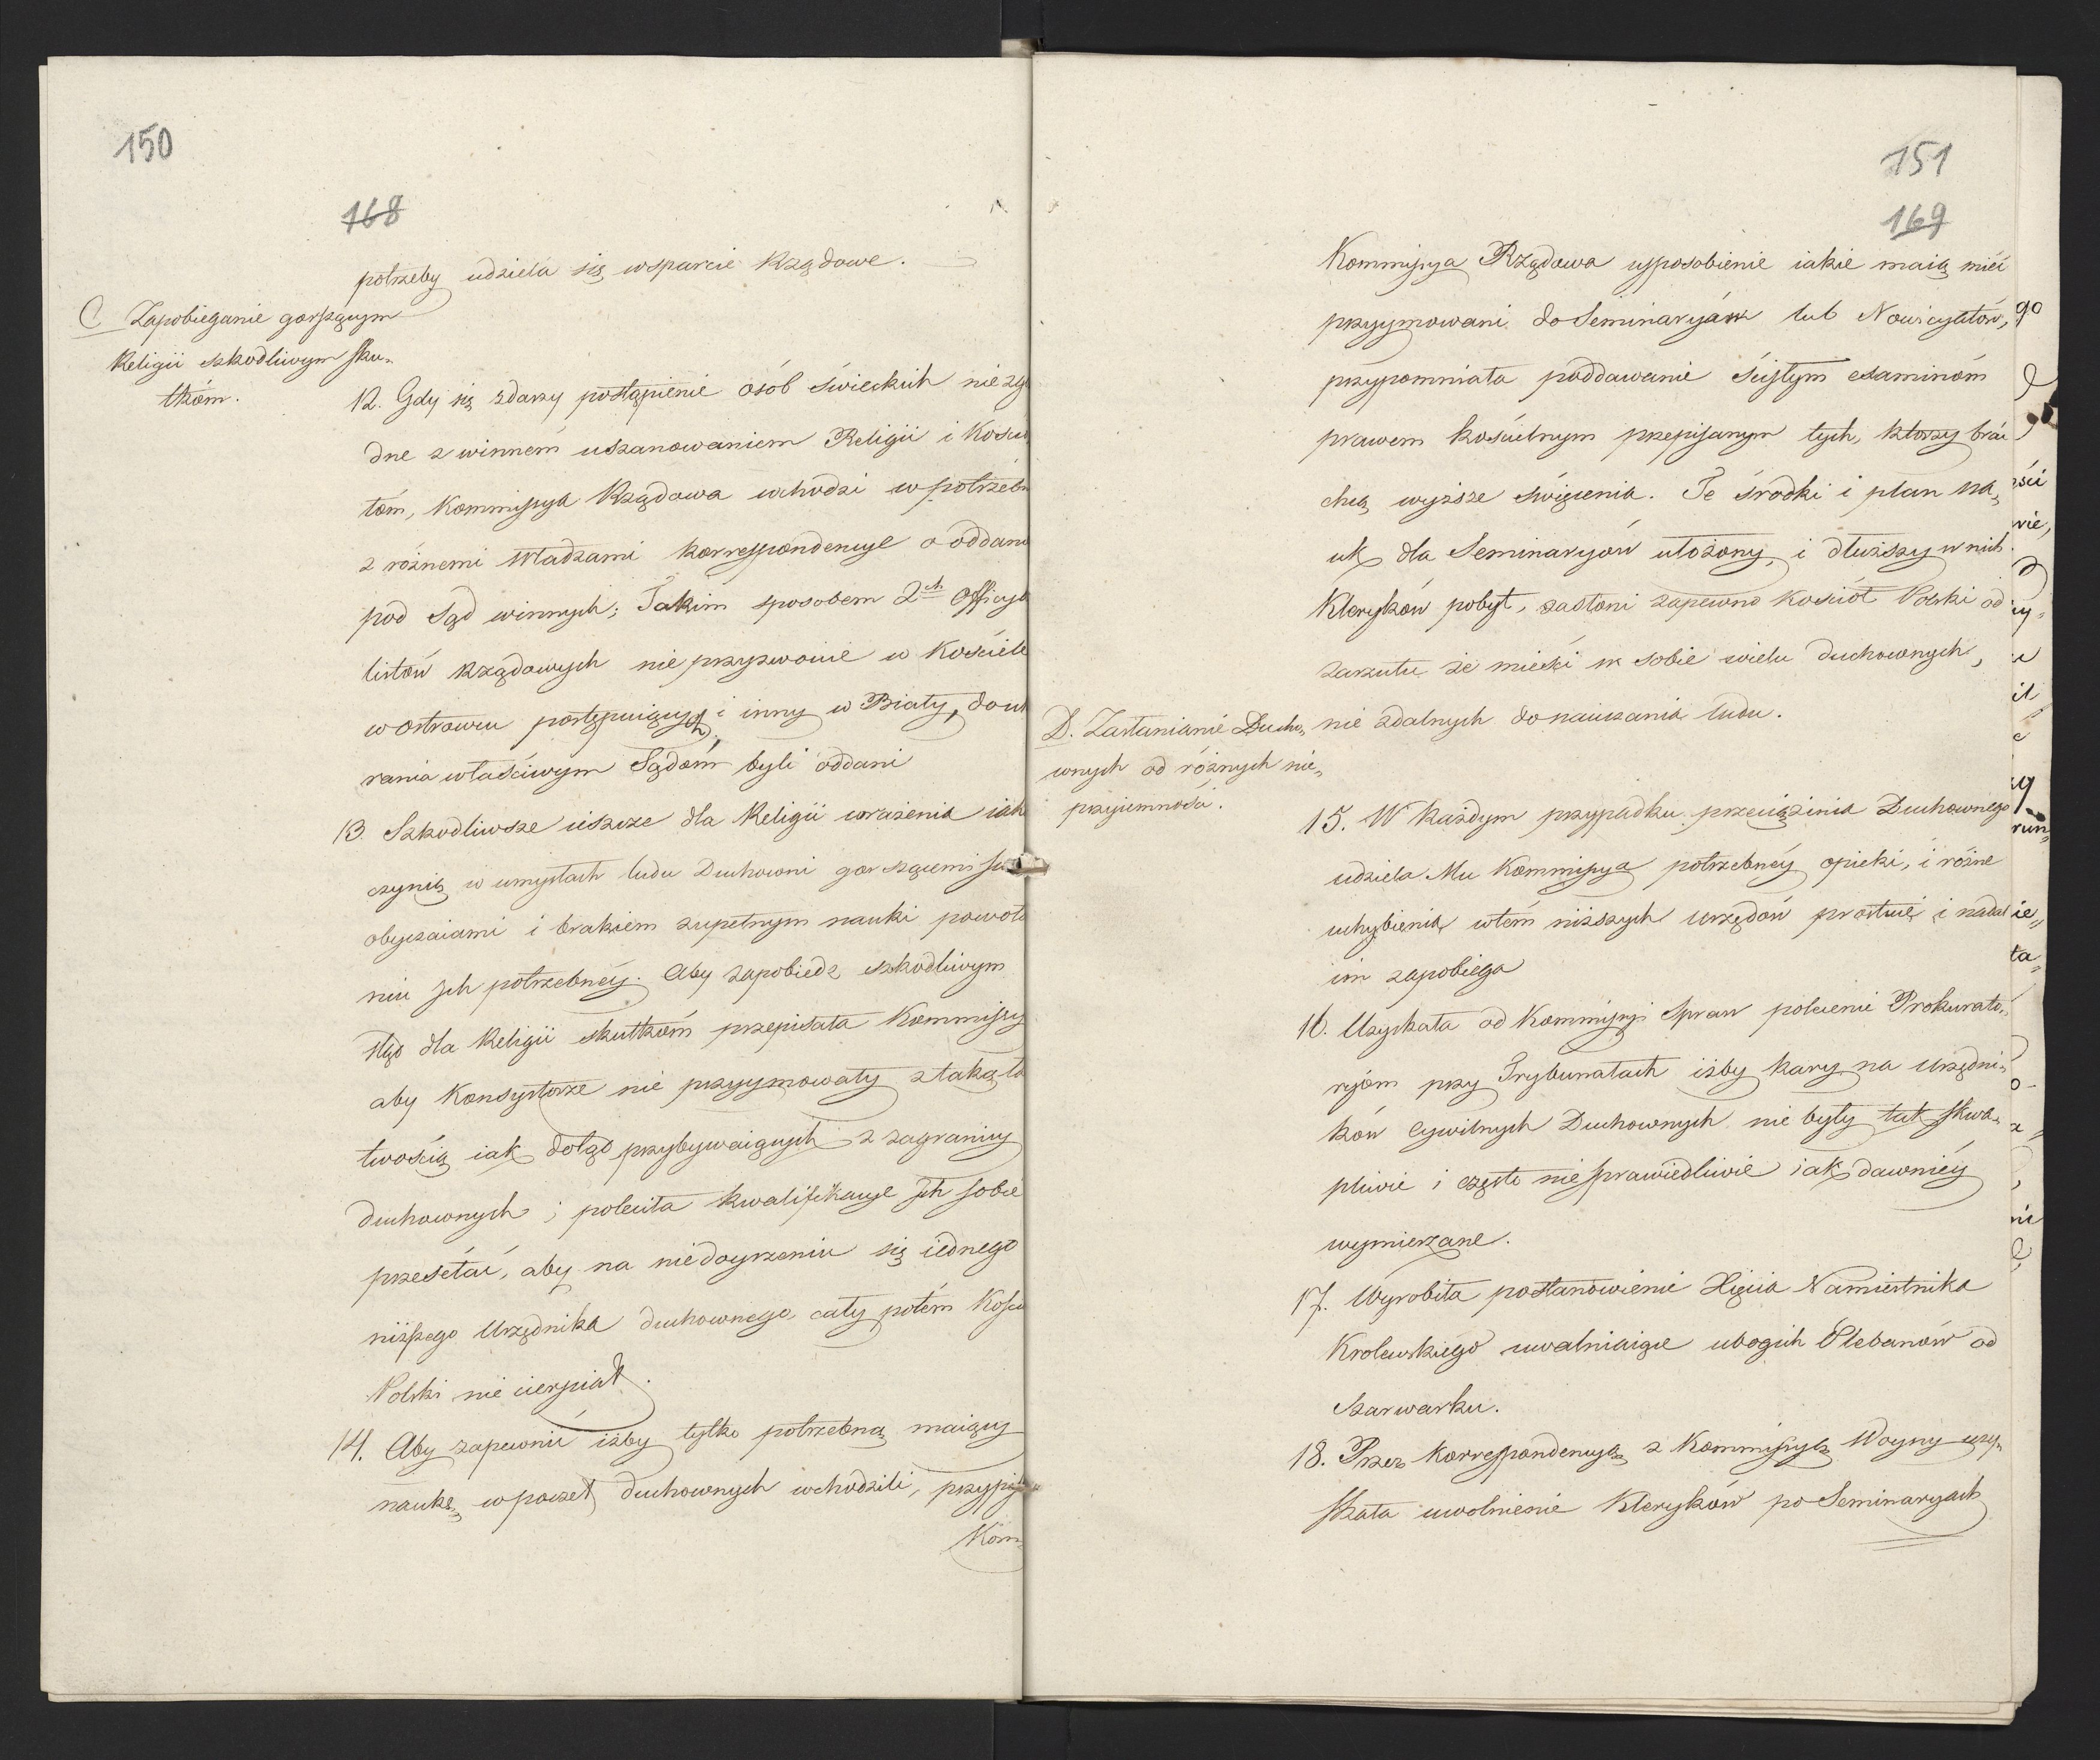 150
168
potrzeby udziela się wsparcie Rządowe.
C Zapobieganie gorszącym
Religii szkodliwym sku-
tkóm.
12. Gdy się zdarzy postąpienie osób świeckich nie zgo
dne z winném uszanowaniem Religii i Kościo
łóm, Kommissya Rządowa wchodzi w potrzebn
z róznemi Władzami korrespondencye o oddani
pod Sąd winnych; Takim sposobem 2ch Officya
listów Rządowych nieprzyzwoicie w Kościele
w Ostrowcu postępuiących i inny w Biały, do uk
rania właściwym Sądóm byli oddani
13. Szkodliwsze ieszcze dla Religii wrażenia iaki
czynią w umysłach ludu Duchowni gorszącemi
obyczaiami i brakiem zupełnym nauki powoła
niu Jch potrzebnéy. Aby zapobiedz szkodliwym
ztąd dla Religii skutkóm przepisała Kommissy
aby Konsystorze nie przyymowały z taką ła
twością iak dotąd przybywaiących z zagranicy
Duchownych; poleciła kwalifikacye Jch sobie
przesełać, aby na niedoyrzeniu się iednego
niższego Urzędnika duchownego, cały potém Kośció
Polski nie cierpiał.
14. Aby zapewnić iżby tylko potrzebną maiący
naukę, w poczet duchownych wchodzili, przypis
Kom-
151
169
Kommissya Rządowa usposobienie iakie maią mieć
przyymowani do Seminaryów lub Nowicyatów,
przypomniała poddawanie ścisłym examinóm
prawem kościelnym przepisanym tych, którzy brać
chcą wyższe święcenia. Te środki i plan na-
uk dla Seminaryów ułożony, i dłuższy w nich
Kleryków pobyt, zasłoni zapewno Kościół Polski od
zarzutu że mieści w sobie wielu duchownych,
nie zdatnych do nauczania ludu.
D. Zasłanianie Ducho-
wnych od różnych nie-
przyiemności.
15. W każdym przypadku przeciążenia Duchownego
udziela Mu Kommissya potrzebnéy opieki, i różne
uchybienia wtém niższych Urzędów prostuie i nadal
im zapobiega
16. Uzyskała od Kommissyi Spraw polecenie Prokurato-
ryóm przy Trybunałach iżby kary na Urzędni-
ków Cywilnych Duchownych nie były tak skwa-
pliwie i często niesprawiedliwie iak dawniéy
wymierzane.
17. Wyrobiła postanowienie Xięcia Namiestnika
Krolewskiego uwalniaiące ubogich Plebanów od
szarwarku.
18. Przez korrespondencyą z Kommissyą Woyny uzy-
skała uwolnienie Kleryków po Seminaryach